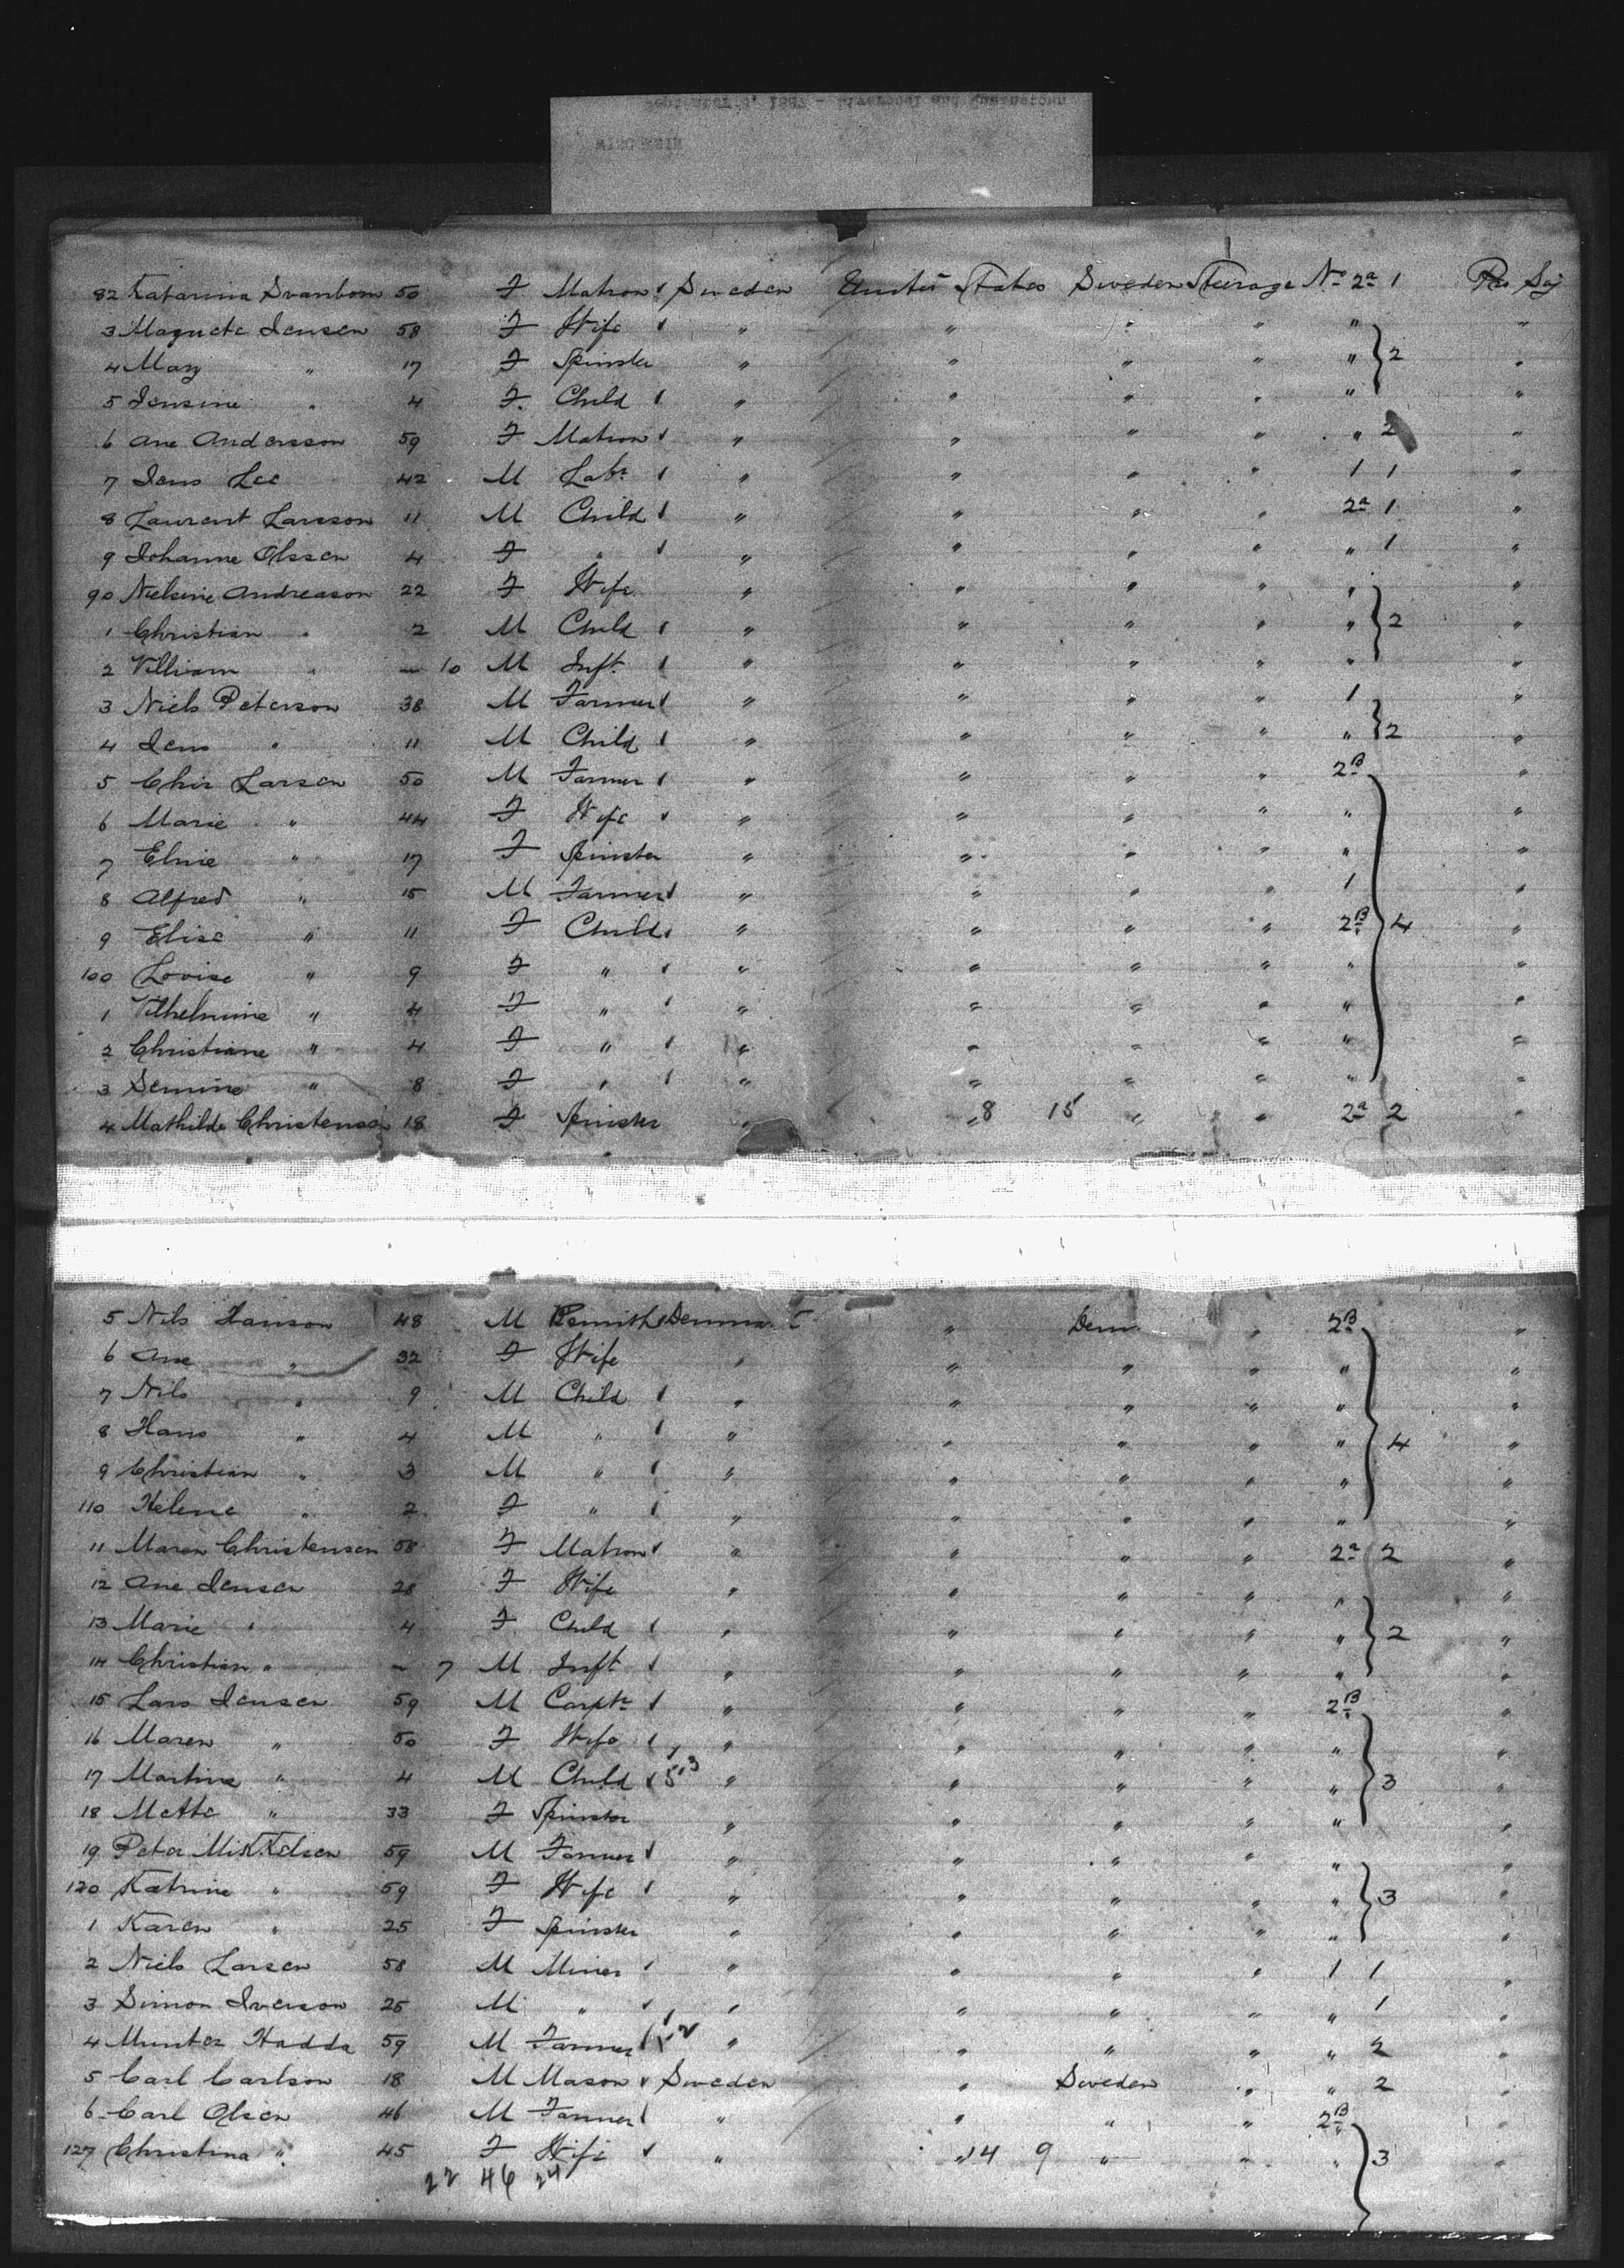 82 Katarina Svanbom 50 F Matron Sweden United States Sweden Steerage No 2a 1
3 Magneta Jensen 58 F Wife " " " " " "
4 Mary " 17 F Spinster " " " " " 2 "
5 Jensine " 4 F Child " " " " " "
6 Ane Andersson 59 F Matron " " " " " 2 "
7 Jens Lee 42 M Labr " " " " 1 1 "
8 Laurent Larsson 11 M Child " " " " 2a 1 "
9 Johanne Olsson 4 F " " " " " " 1 "
90 Nielsine Andreason 22 F Wife " " " " " "
1 Christian " 2 M Child " " " " " 2 "
2 Villiam " - 10 M Inft " " " " " "
3 Niels Peterson 38 M Farmer " " " " 1 "
4 Jens " 11 M Child " " " " " 2 "
5 Chir Larsen 50 M Farmer " " " " 2B "
6 Marie " 44 F Wife " " " " " "
7 Elnie " 17 F Spinster " " " " " "
8 Alfred " 15 M Farmer " " " " 1 "
9 Elise " 11 F Child " " " " 2B 4 "
100 Lovise " 9 F " " " " " " "
1 Vilhelmine " 4 F " " " " " " "
2 Christiane " 4 F " " " " " " "
3 Semine " 8 F " " " " " " "
4 Mathilde Christensen 18 F Spinster " " 8 15 " " 2a 2 "
5 Nils Hanson 48 M " " 2B "
6 Ane " 32 F Wife " " " " " "
7 Nils " 9 M Child " " " " " "
8 Hans " 4 M " " " " " " 4 "
9 Christian " 3 M " " " " " " "
110 Helene " 2 F " " " " " " "
11 Maren Christensen 58 F Matron " " " " 2a 2 "
12 Ane Jensen 28 F Wife " " " " " "
13 Marie " 4 F Child " " " " " 2 "
14 Christian " - 7 M Inft " " " " " "
15 Lars Jensen 59 M Carptr " " " " 2B "
16 Maren " 50 F Wife " " " " " "
17 Martine " 4 M Child 513 " " " " " 3 "
18 Mette " 33 F Spinster " " " " " "
19 Peter Mikkelsen 59 M Farmer " " " " " "
120 Katrine " 59 F Wife " " " " " 3 "
1 Karen " 25 F Spinster " " " " " "
2 Niels Larsen 58 M Miner " " " " 1 1 "
3 Simon Iverson 25 M " " " " " " 1
4 Munter Hadda 59 M Farmer " " " " " 2
5 Carl Carlson 18 M Mason Sweden " Sweden " " 2 "
6 Carl Olsen 46 M Farmer " " " " 2B "
127 Christina " 45 F Wife " " 14 9 " " " 3 "
22 46 24